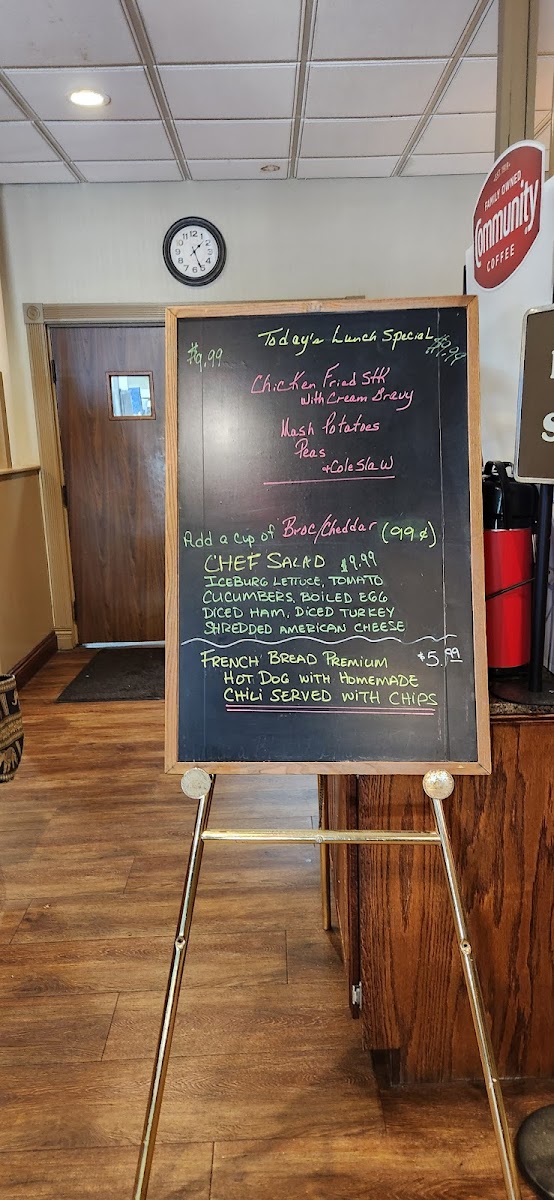 Today's Lunch Special
$9.99 $9.99
Chicken Fried Stk
with Cream Gravy
Mash Potatoes
Peas
+ Cole Slaw
Add a cup of Broc/Cheddar (99¢)
CHEF SALAD $9.99
ICEBURG LETTUCE, TOMATO
CUCUMBERS, BOILED EGG
DICED HAM, DICED TURKEY
SHREDDED AMERICAN CHEESE
FRENCH BREAD PREMIUM $5.99
HOT DOG WITH HOMEMADE
CHILI SERVED WITH CHIPS
FAMILY OWNED
Community
COFFEE
12 1 2 3 4 5 6 7 8 9 10 11